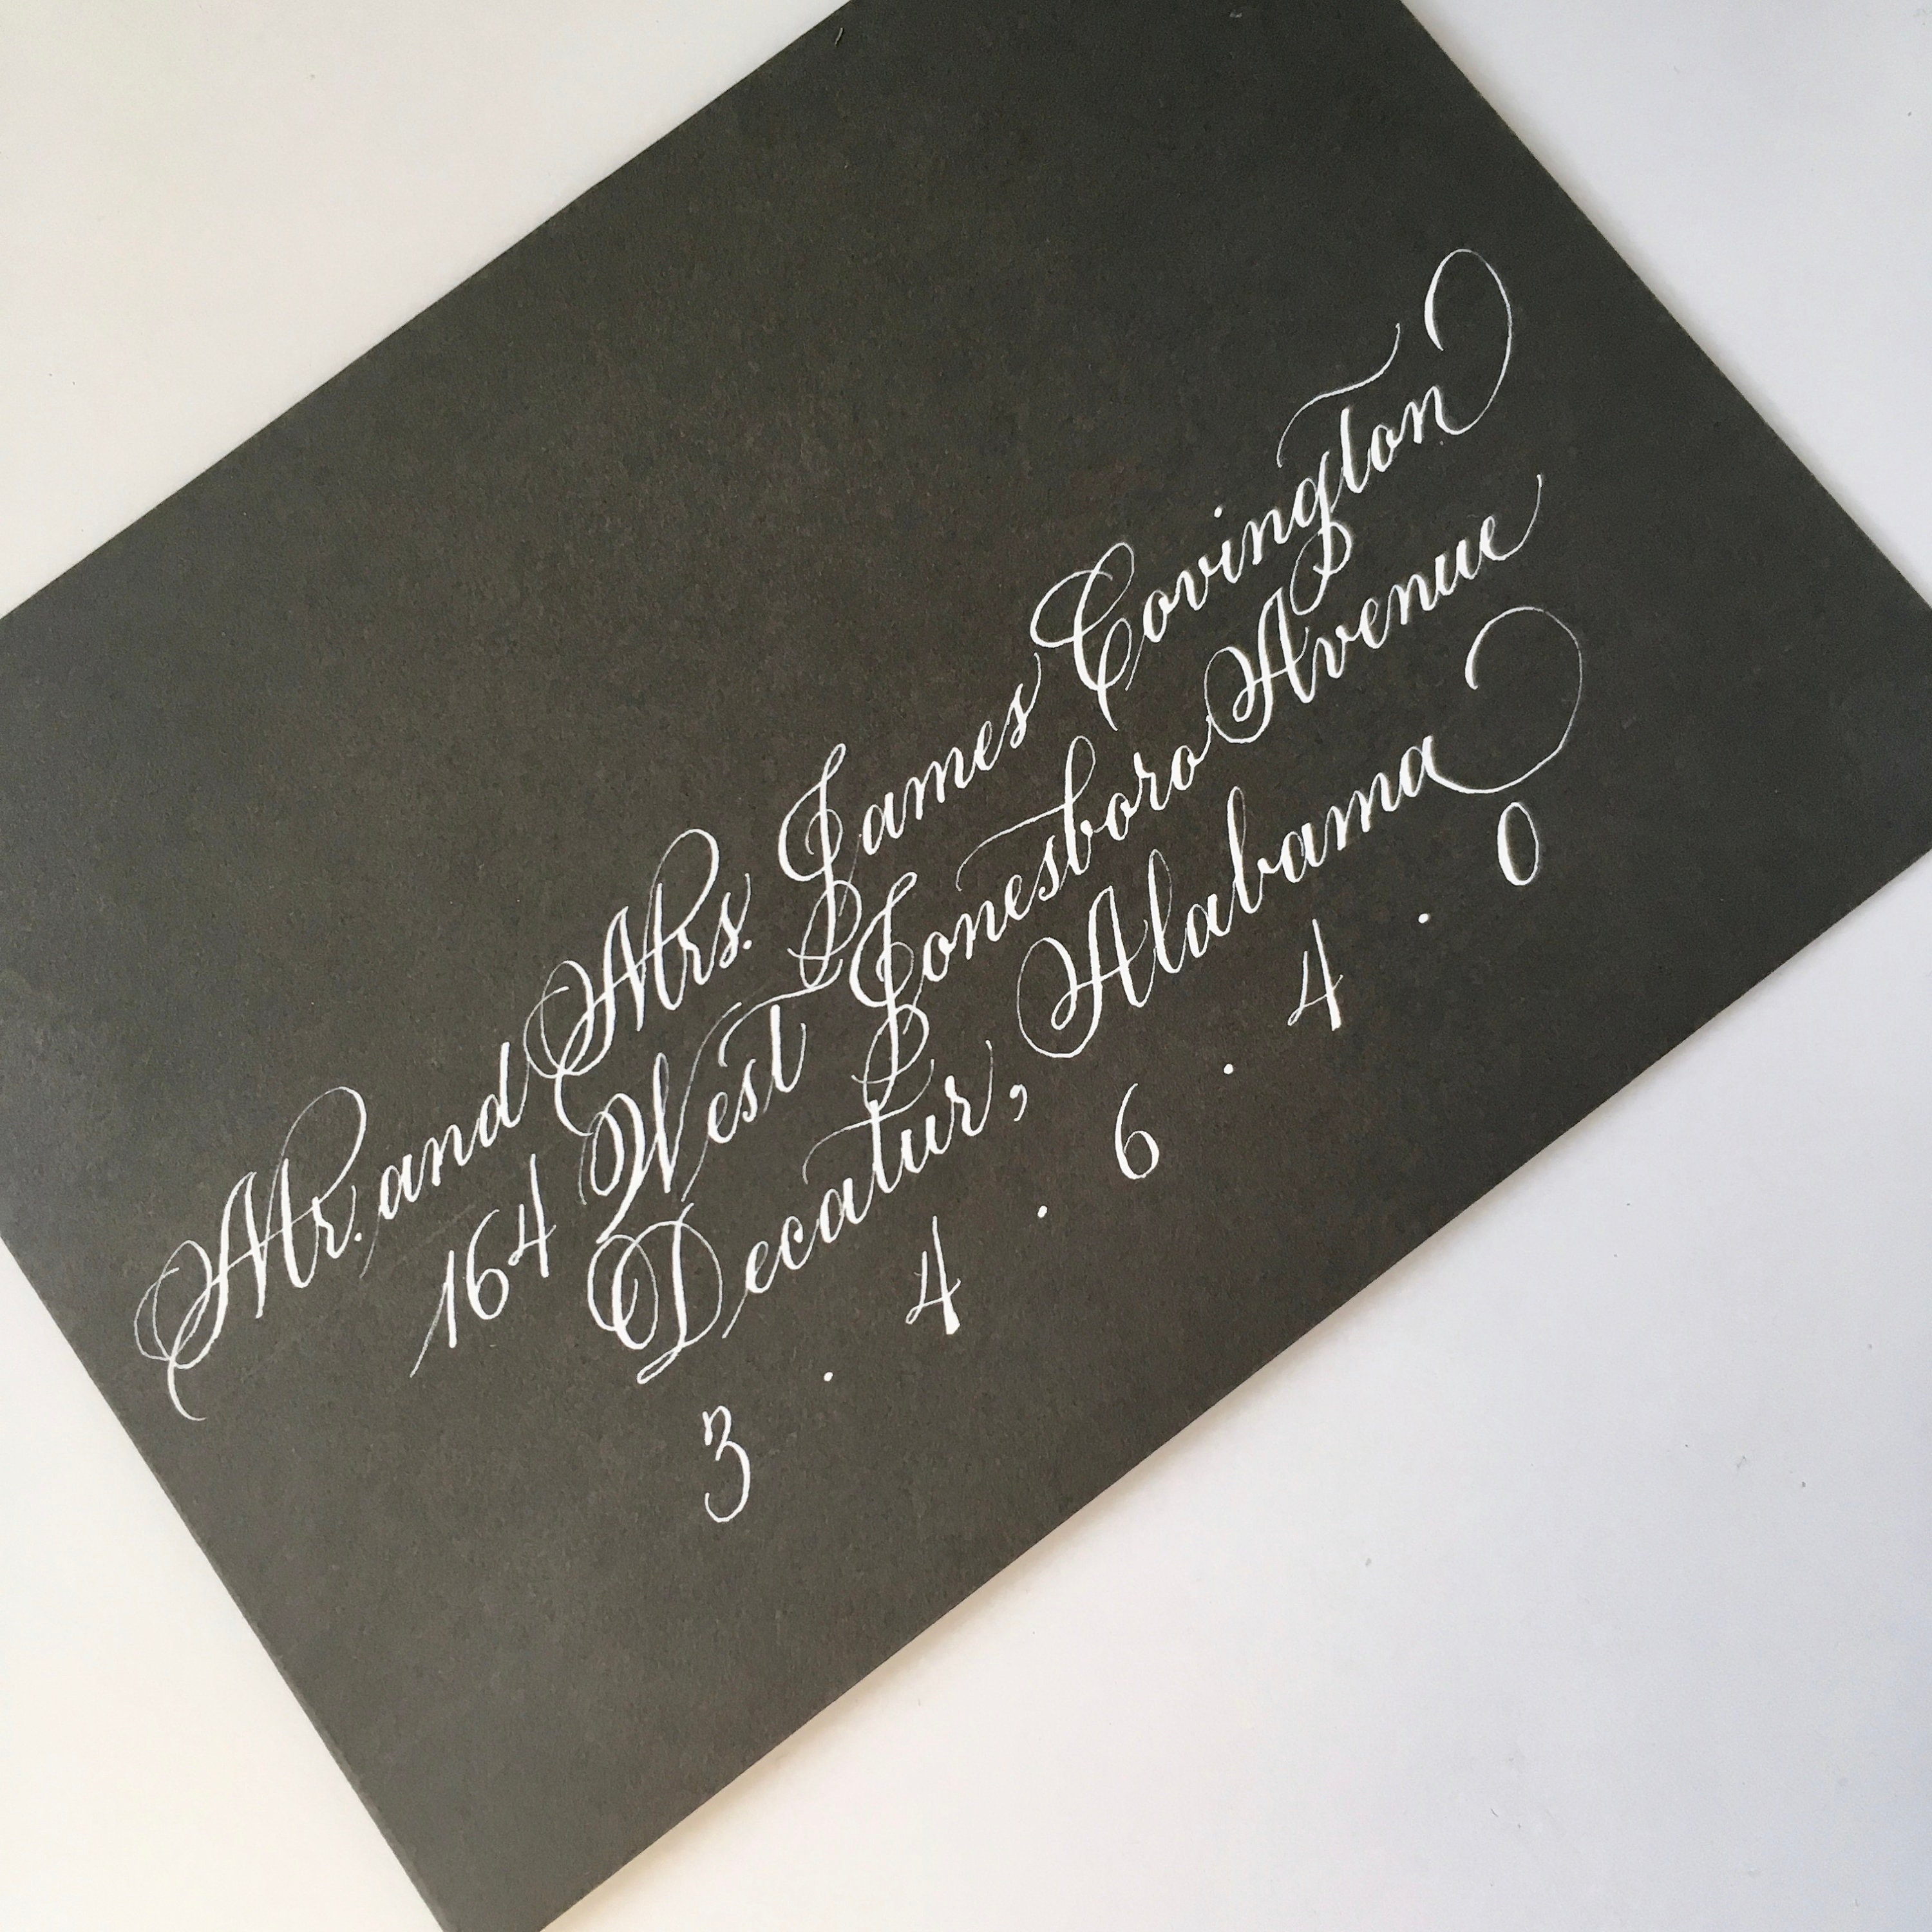 Mr. and Mrs. James Covington
164 West Jonesboro Avenue
Decatur, Alabama
3 . 4 . 6 . 4 . 0